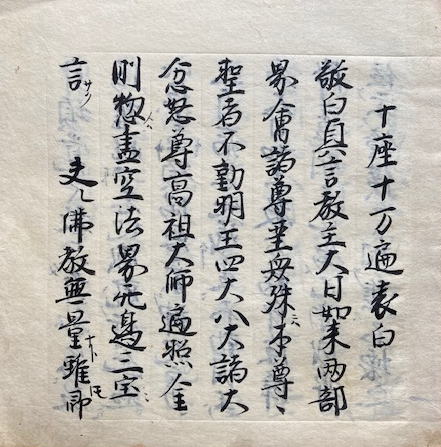 十座十万遍表白
敬白真言教主大日如来両部
界會諸尊聖衆殊ニハ本尊〻
聖者不動明王四大八大諸大
忿怒尊高祖大師遍照金
剛惣盡空法界无邊三宝
言サク 夫レ佛教無量雖即